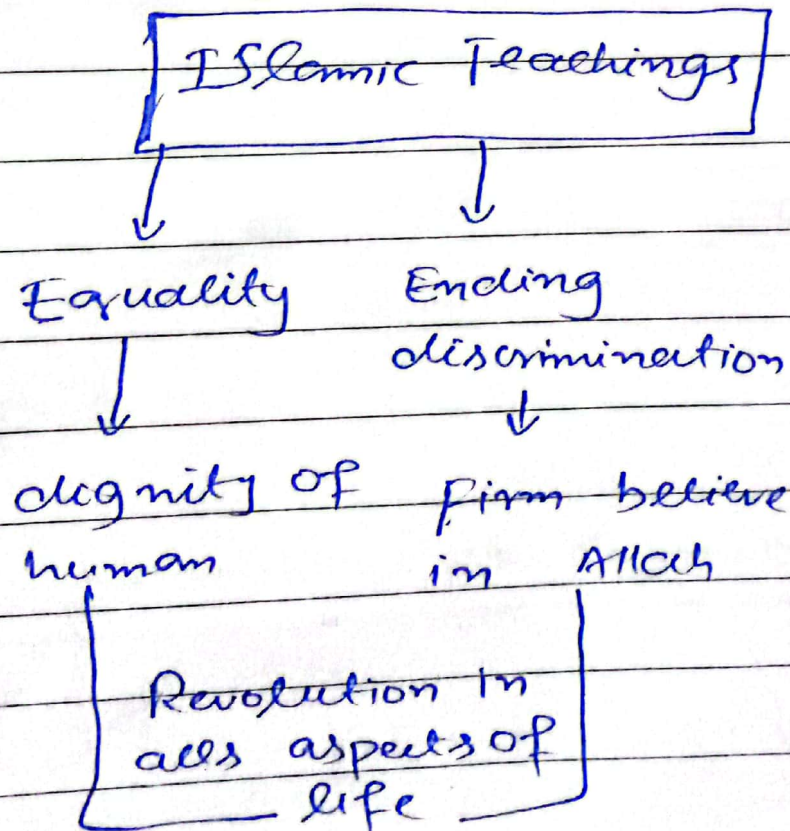 ISlamic Teachings
Equality
Ending
discrimination
dignity of
human
Firm believe
in Allah
Revolution In
alls aspects of
life